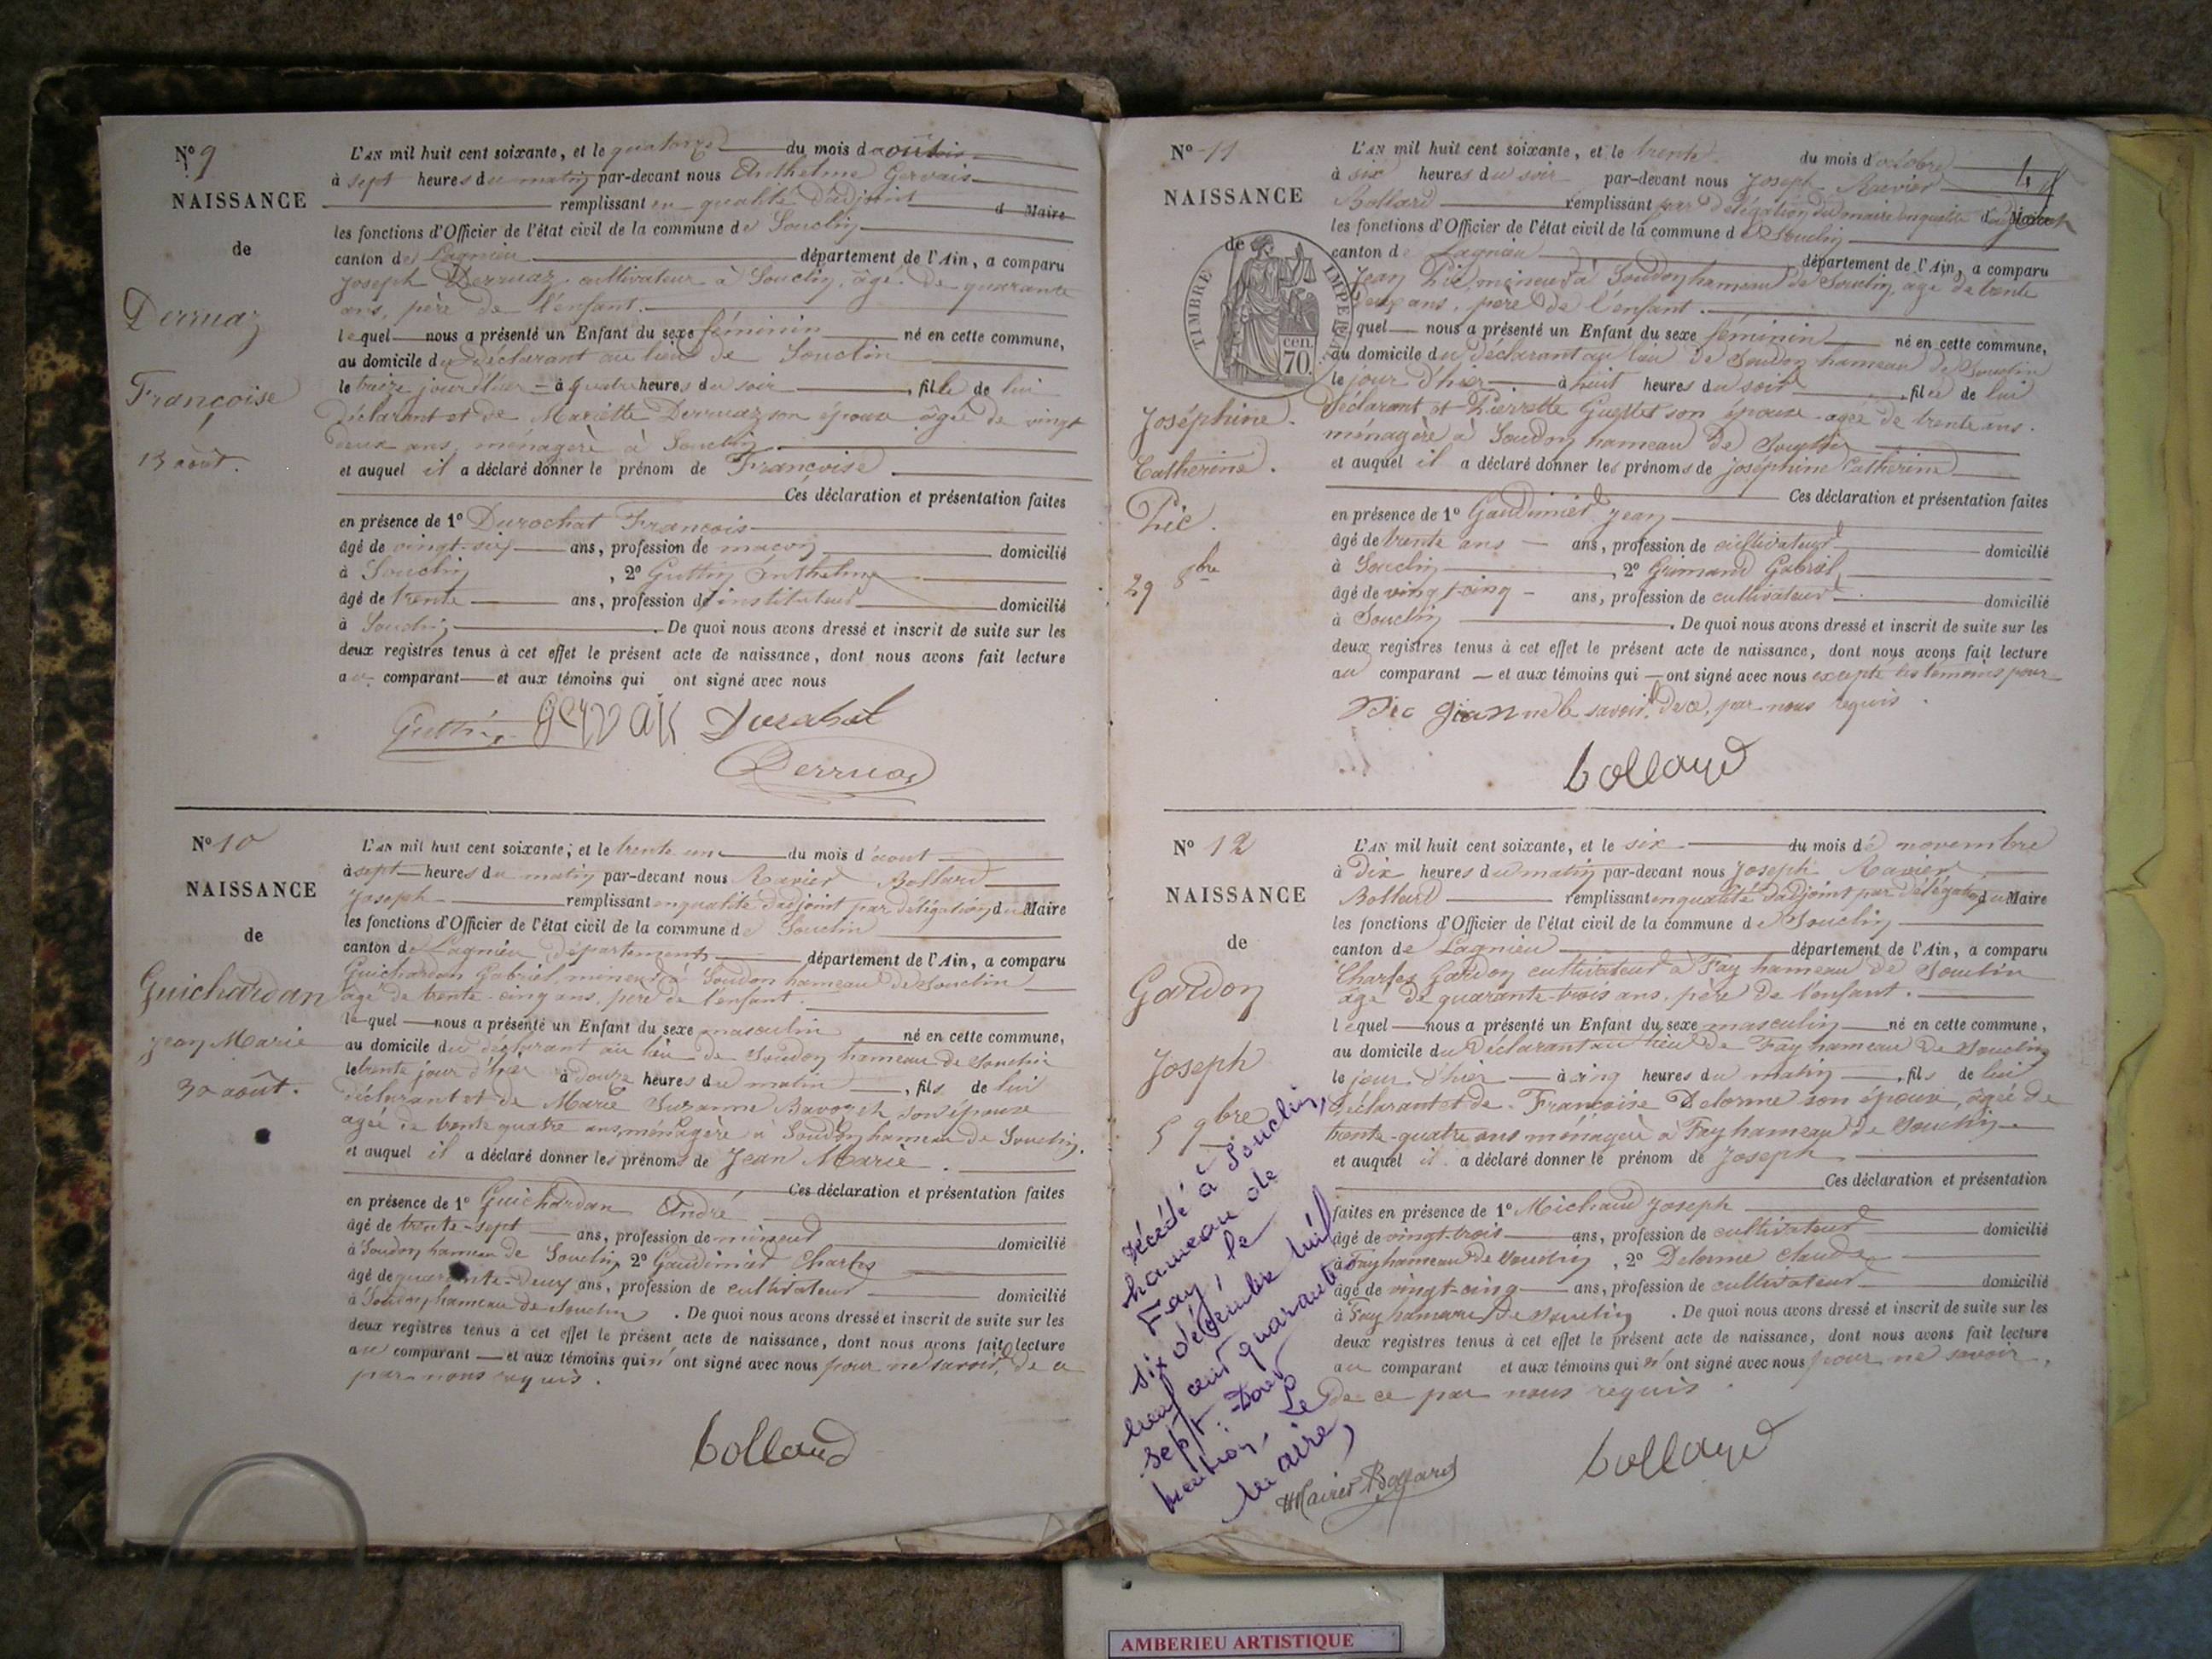 N° 9
NAISSANCE
de
Derruaz
Françoise
13 août.
L'AN mil huit cent soixante, et le quatorze du mois d'août
à sept heures du matin par-devant nous Anthelme Gervais
remplissant en qualité d'adjoint d Maire
les fonctions d'Officier de l'état civil de la commune de Souclin
canton de Lagnieu département de l'Ain, a comparu
Joseph Derruaz cultivateur à Souclin, âgé de quarante
ans, père de l'enfant.
lequel nous a présenté un Enfant du sexe féminin né en cette commune,
au domicile du déclarant au lieu de Souclin
le treize jour d'hier à quatre heures du soir, fille de lui
déclarant et de Mariette Derruaz son épouse âgée de vingt
deux ans, ménagère à Souclin
et auquel il a déclaré donner le prénom de Françoise
Ces déclaration et présentation faites
en présence de 1° Durochat François
âgé de vingt-six ans, profession de maçon domicilié
à Souclin, 2° Guttin Anthelme
âgé de trente ans, profession d'instituteur domicilié
à Souclin. De quoi nous avons dressé et inscrit de suite sur les
deux registres tenus à cet effet le présent acte de naissance, dont nous avons fait lecture
au comparant et aux témoins qui ont signé avec nous
Guttin Gervais
Derruaz
N° 10
NAISSANCE
de
Guichardan
Jean Marie
30 août.
L'AN mil huit cent soixante, et le trente un du mois d'aout
à sept heures du matin par-devant nous Ravier Bollard
Joseph remplissant en qualité d'adjoint par délégation du Maire
les fonctions d'Officier de l'état civil de la commune de Souclin
canton de Lagnieu département département de l'Ain, a comparu
Guichardan Gabriel, mineur à Soudon hameau de Souclin
âgé de trente-cinq ans, père de l'enfant.
lequel nous a présenté un Enfant du sexe masculin né en cette commune,
au domicile du déclarant au lieu de Soudon hameau de Souclin
le trente jour d'hier à douze heures du matin, fils de lui
déclarant et de Marie Suzanne son épouse
âgée de trente quatre ans ménagère à Soudon hameau de Souclin.
et auquel il a déclaré donner les prénoms de Jean Marie.
Ces déclaration et présentation faites
en présence de 1° Guichardan André
âgé de trente-sept ans, profession de mineur domicilié
à Soudon hameau de Souclin, 2° Gaudinier Charles
âgé de quarante-deux ans, profession de cultivateur domicilié
à Soudon hameau de Souclin. De quoi nous avons dressé et inscrit de suite sur les
deux registres tenus à cet effet le présent acte de naissance, dont nous avons fait lecture
au comparant et aux témoins qui n'ont signé avec nous pour ne savoir, de ce
par nous requis.
bollard
N° 11
NAISSANCE
de
TIMBRE IMPERIAL
70 cen.
Joséphine.
Catherine.
Pic.
29 8bre
L'AN mil huit cent soixante, et le trente du mois d'octobre
à six heures du soir par-devant nous Joseph Ravier
Bollard remplissant par délégation du maire en qualité d'adjoint
les fonctions d'Officier de l'état civil de la commune de Souclin
canton de Lagnieu département de l'Ain, a comparu
Jean Pic mineur à Soudon hameau de Souclin, âgé de trente
deux ans, père de l'enfant.
quel nous a présenté un Enfant du sexe féminin né en cette commune,
au domicile du déclarant au lieu de Soudon hameau de Souclin
le jour d'hier à huit heures du soir, fille de lui
déclarant et Pierrette son épouse âgée de trente ans.
ménagère à Soudon hameau de Souclin
et auquel il a déclaré donner les prénoms de joséphine Catherine
Ces déclaration et présentation faites
en présence de 1° Gaudinier Jean
âgé de trente ans ans, profession de cultivateur domicilié
à Souclin, 2° Grimand Gabriel
âgé de vingt-cinq ans, profession de cultivateur domicilié
à Souclin. De quoi nous avons dressé et inscrit de suite sur les
deux registres tenus à cet effet le présent acte de naissance, dont nous avons fait lecture
au comparant et aux témoins qui ont signé avec nous excepté les témoins pour
Pic Jean ne le savoir, de ce, par nous requis.
bollard
N° 12
NAISSANCE
de
Gardon
Joseph
5 9bre
L'AN mil huit cent soixante, et le six du mois de novembre
à Dix heures du matin par-devant nous Joseph Ravier
Bollard remplissant en qualité d'adjoint par délégation du Maire
les fonctions d'Officier de l'état civil de la commune de Souclin
canton de Lagnieu département de l'Ain, a comparu
Charles Gardon cultivateur à Fay hameau de Souclin
âgé de quarante-trois ans, père de l'enfant.
lequel nous a présenté un Enfant du sexe masculin né en cette commune,
au domicile du Déclarant au lieu de Fay hameau de Souclin
le jour d'hier à cinq heures du matin, fils de lui
déclarant et de Françoise Delorme son épouse, âgée de
trente-quatre ans ménagère à Fay hameau de Souclin
et auquel il a déclaré donner le prénom de Joseph
Ces déclaration et présentation
faites en présence de 1° Michaud Joseph
âgé de vingt-trois ans, profession de cultivateur domicilié
à Fay hameau de Souclin, 2° Delorme Claude
âgé de vingt-cinq ans, profession de cultivateur domicilié
à Fay hameau de Souclin. De quoi nous avons dressé et inscrit de suite sur les
deux registres tenus à cet effet le présent acte de naissance, dont nous avons fait lecture
au comparant et aux témoins qui n'ont signé avec nous pour ne savoir,
de ce par nous requis
bollard
Décédé à Souclin,
hameau de
Fay, le
six décembre mil
neuf cent quarante
sept. Dont
mention, Le
Maire,
AMBERIEU ARTISTIQUE